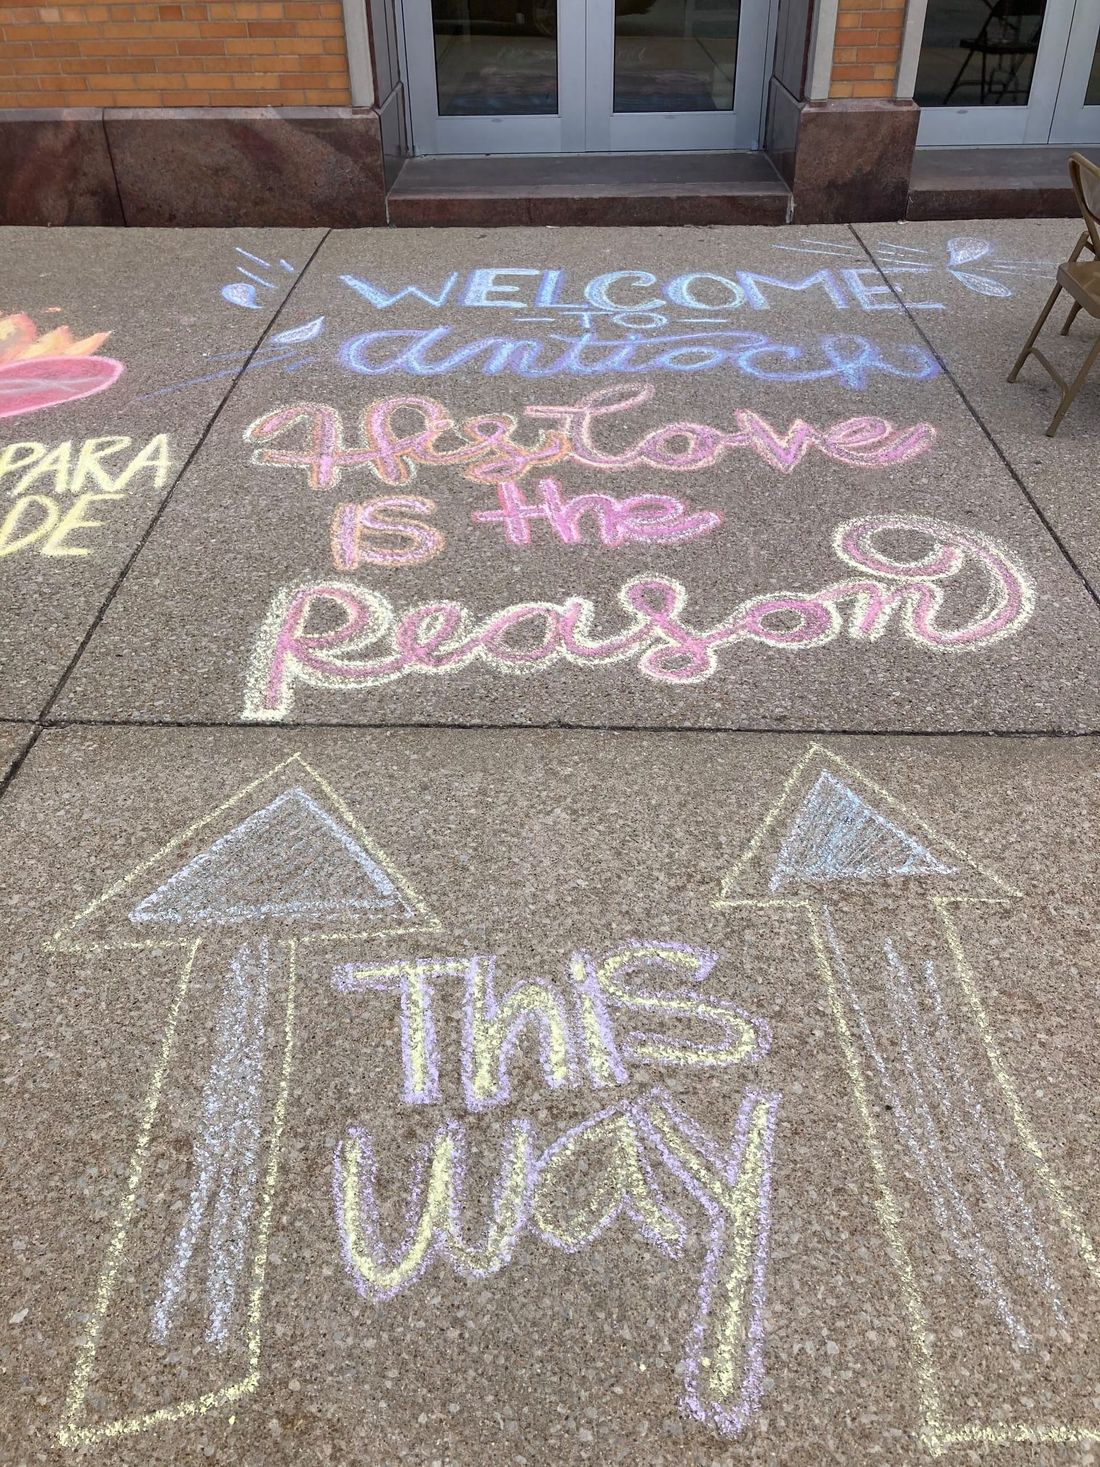 WELCOME
TO
Antioch
His Love
is the
Reason
PARA
DE
This
way